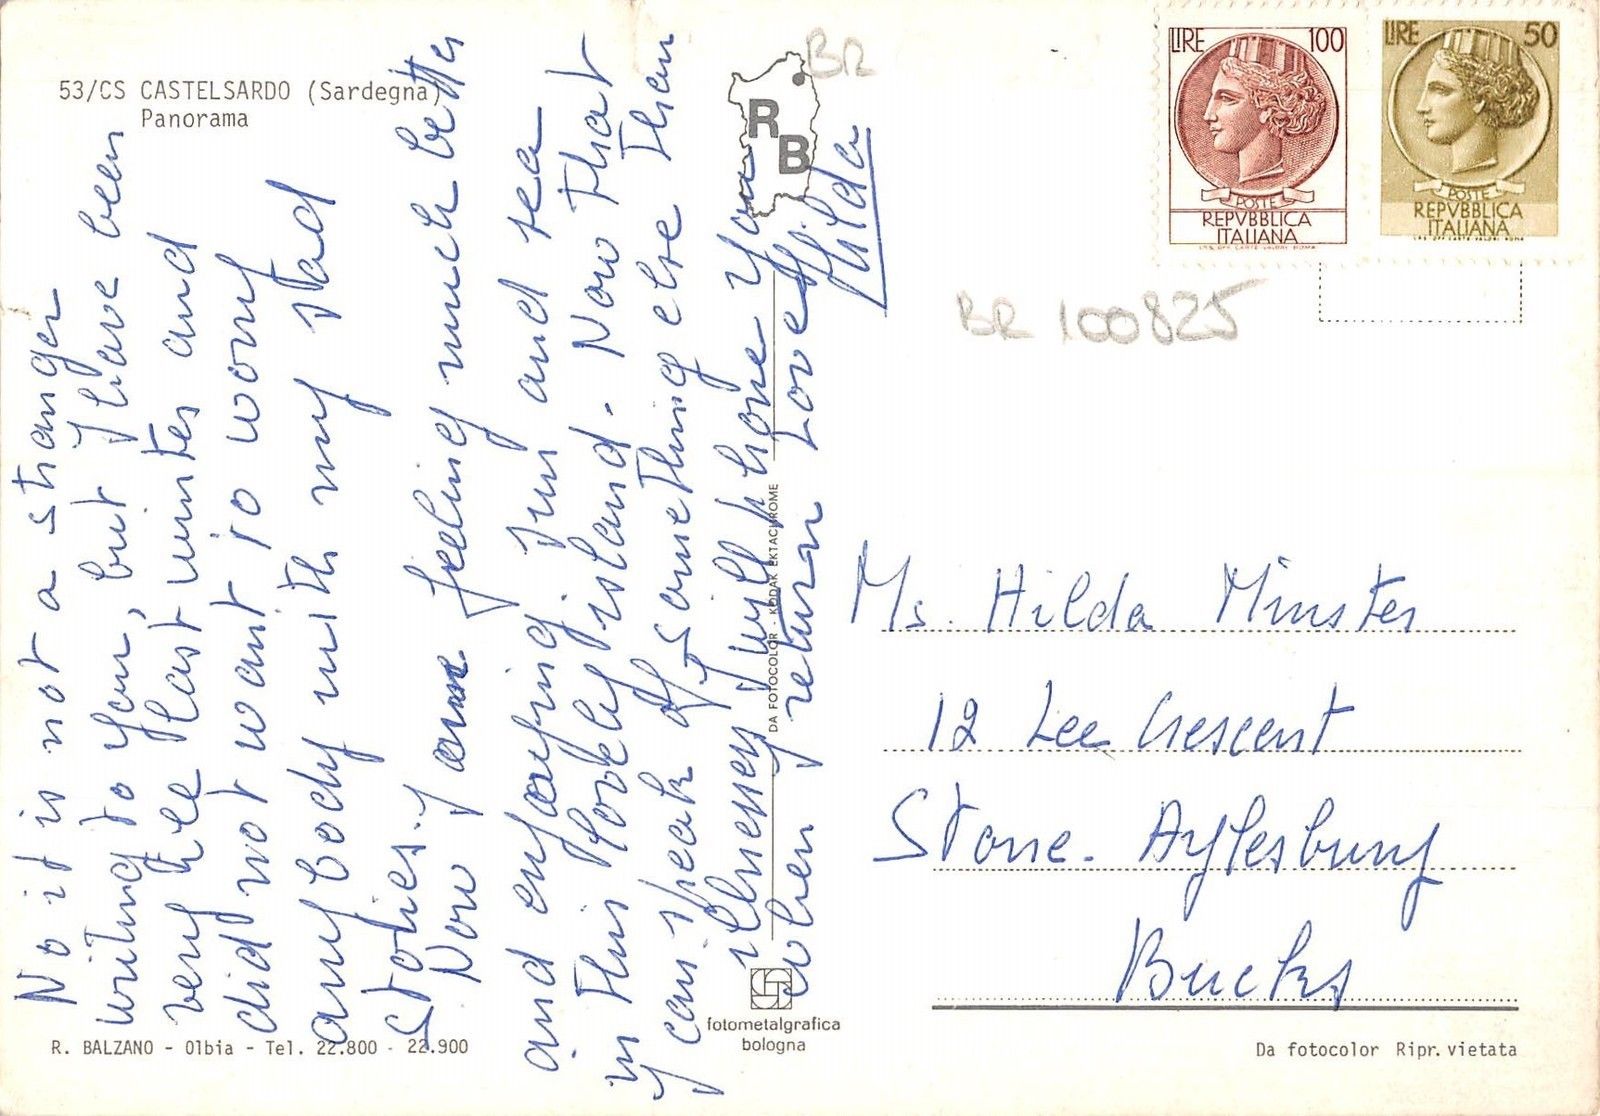 53/CS CASTELSARDO (Sardegna)
Panorama
No it is not a stranger
writing to you, but I have been
very ill last winter and
did not want to worry
any body with my sad
stories.
Now I am feeling much better
and enjoying sun and sea
in this lovely island. Now that
I can speak of something else than
illnesses I will phone you
when I return Love
Hilda
BR
R
B
LIRE 100
POSTE
REPVBBLICA
ITALIANA
I.P.S. OFF. CARTE-VALORI ROMA
LIRE 50
POSTE
REPVBBLICA
ITALIANA
I.P.S. OFF. CARTE VALORI ROMA
BR 100825
Ms. Hilda Minster
12 Lee Crescent
Stone. Aylesbury
Bucks
DA FOTOCOLOR - KODAK EKTACHROME
fotometalgrafica
bologna
R. BALZANO - Olbia - Tel. 22.800 - 22.900
Da fotocolor Ripr. vietata